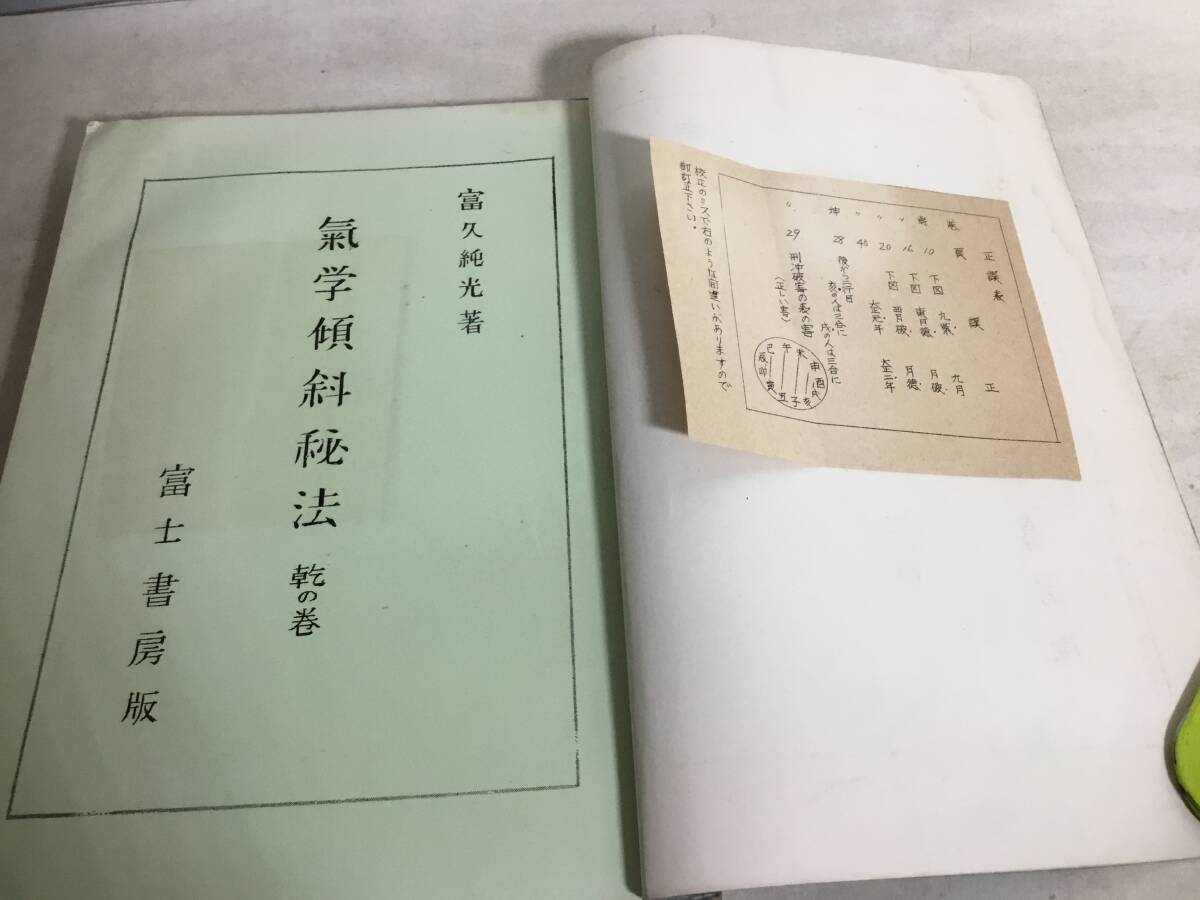 富久純光著
氣学傾斜秘法 乾の巻
富士書房版
正誤表
巻 頁 誤 正
乾 10 下図 九紫 九月
〃 16 下図 月徳 月破
〃 20 下図 月破 月徳
〃 40 大正元年 大正二年
坤 28 後から三行目 亥の人は三合に 戌の人は三合に
〃 29 刑冲破害の表の害
(正しい害)
申酉戌亥
未 子
午 丑
巳 寅
辰卯
校正のミスで右のような間違いがありますので
御訂正下さい。